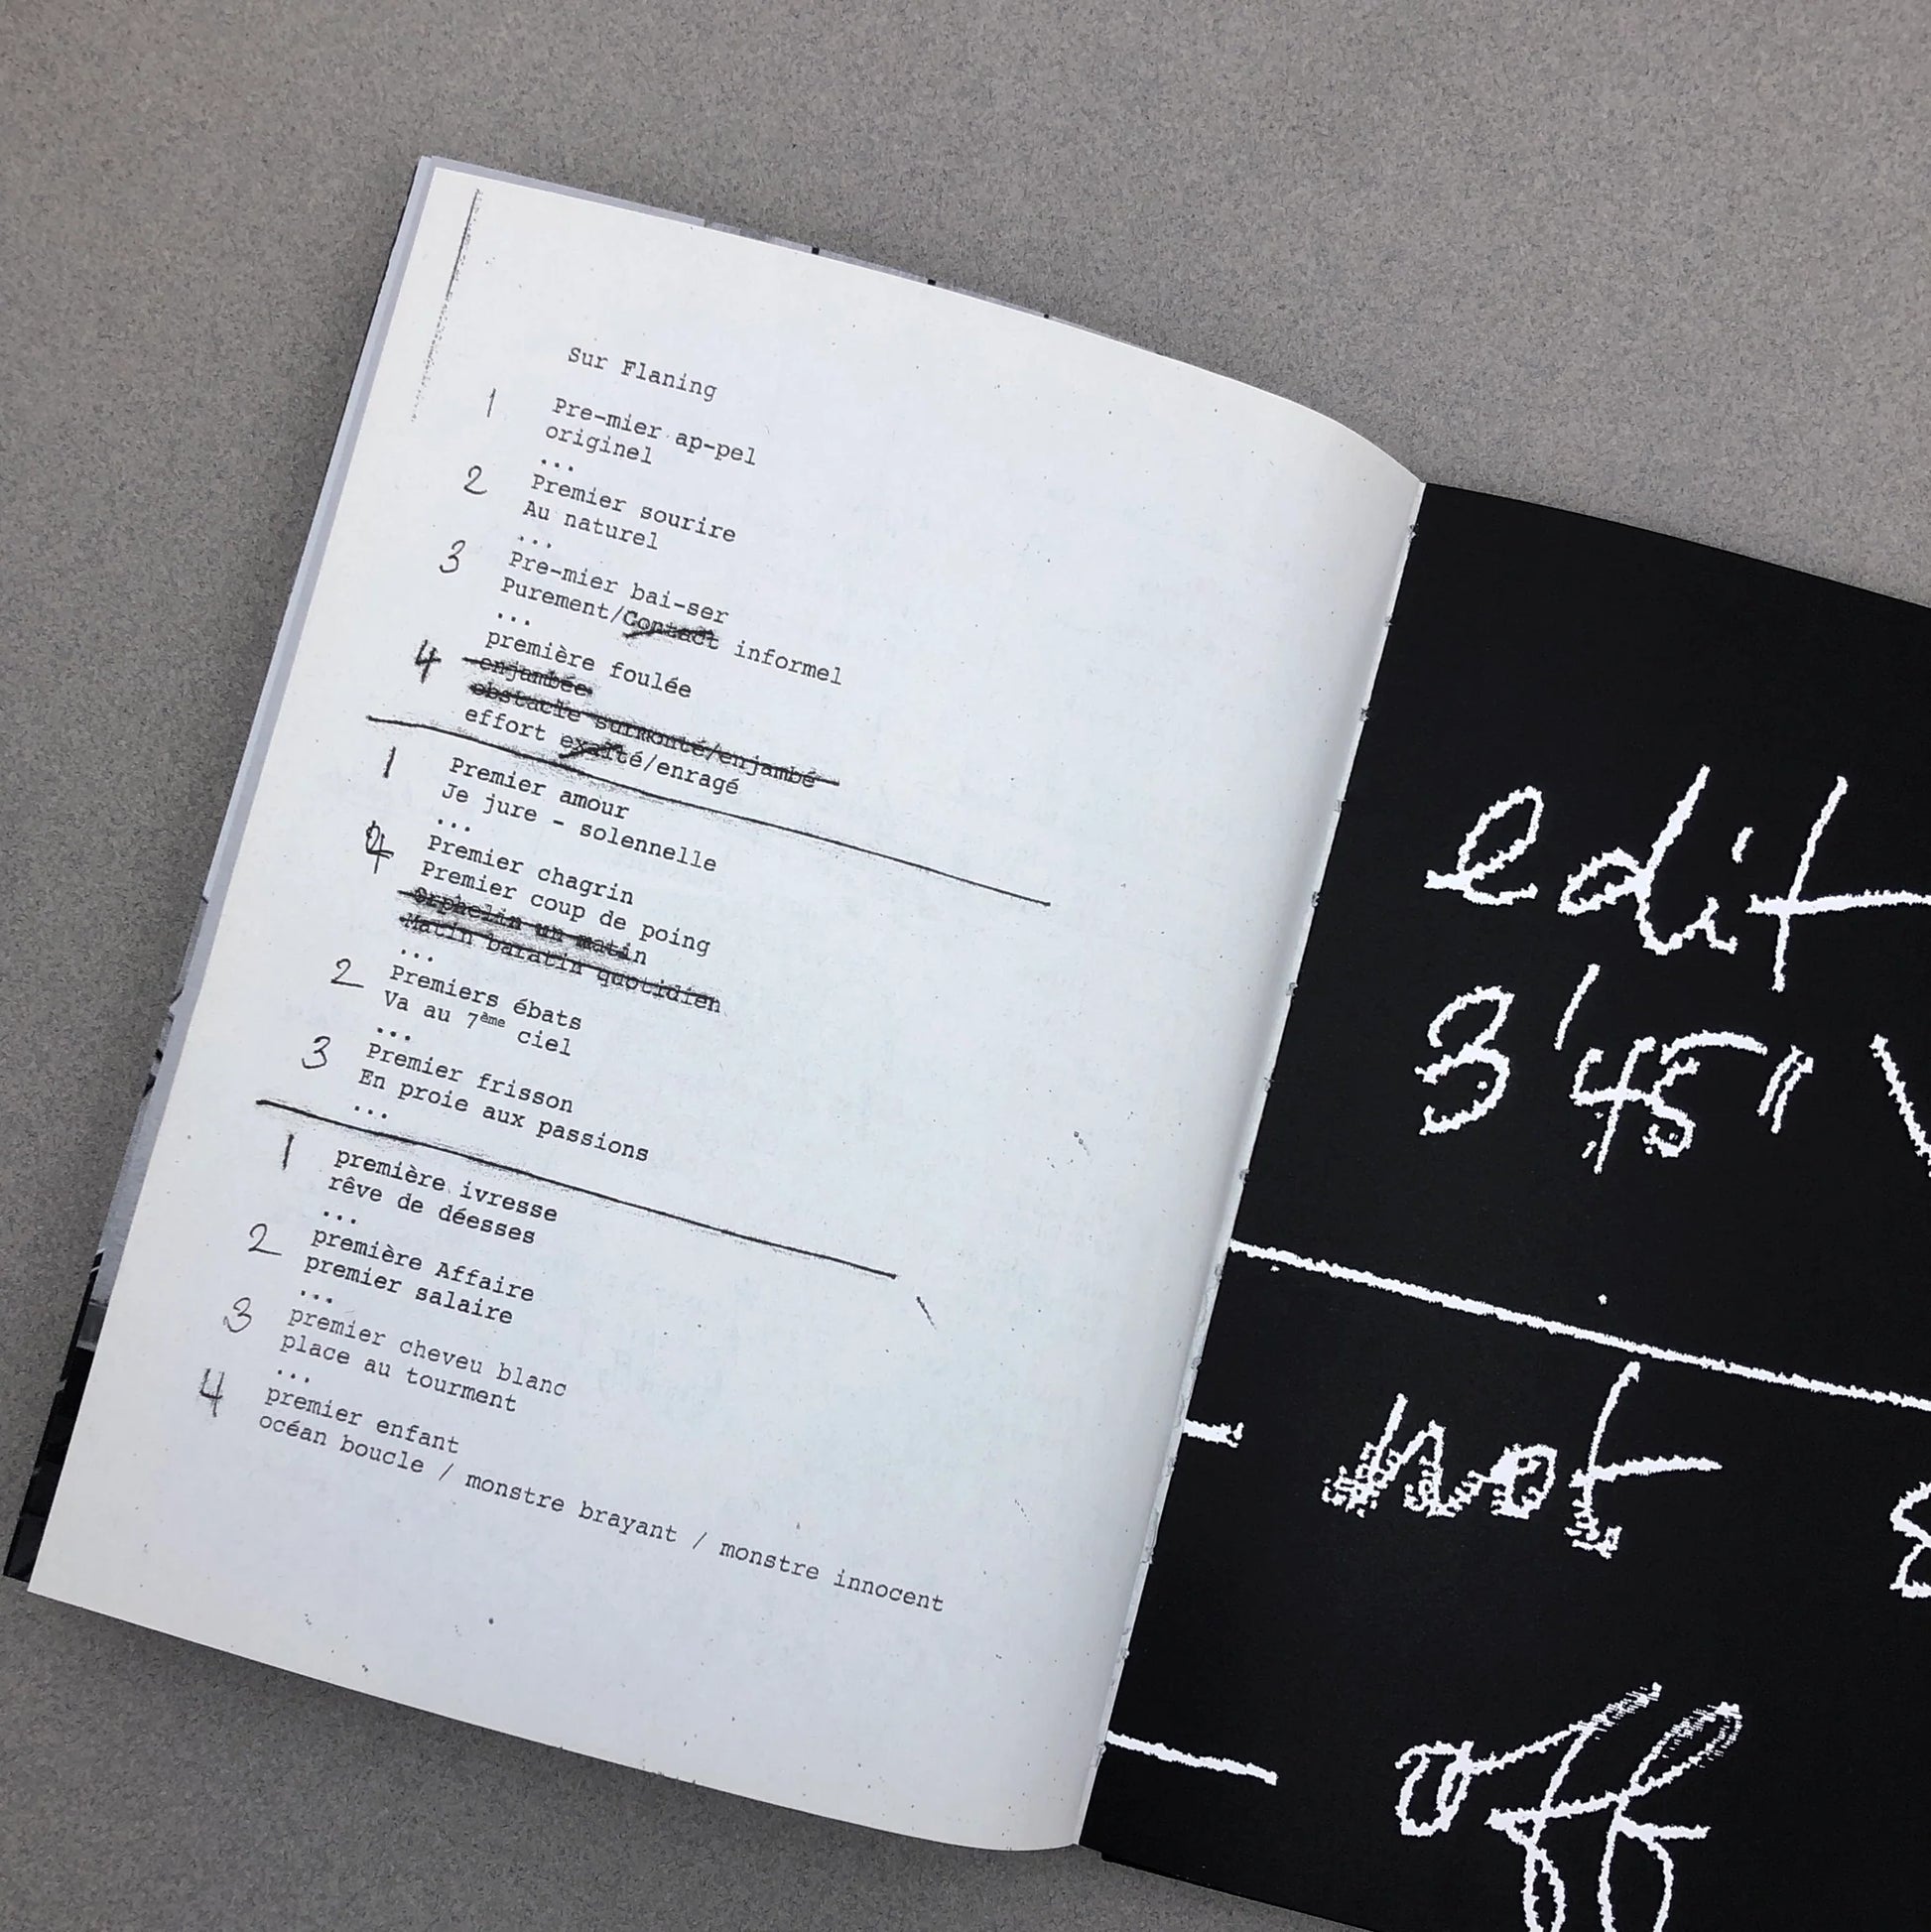 Sur Flaning
1 Pre-mier ap-pel
originel
...
2 Premier sourire
Au naturel
...
3 Pre-mier bai-ser
Purement/Contact informel
...
4 première foulée
enjambée
obstacle surmonté/enjambé
effort exalté/enragé
1 Premier amour
Je jure - solennelle
...
4 Premier chagrin
Premier coup de poing
Orphelin un matin
Matin baratin quotidien
...
2 Premiers ébats
Va au 7ème ciel
...
3 Premier frisson
En proie aux passions
...
1 première ivresse
rêve de déesses
...
2 première Affaire
premier salaire
...
3 premier cheveu blanc
place au tourment
...
4 premier enfant
océan boucle / monstre brayant / monstre innocent
edit
3'45"
- not
- off